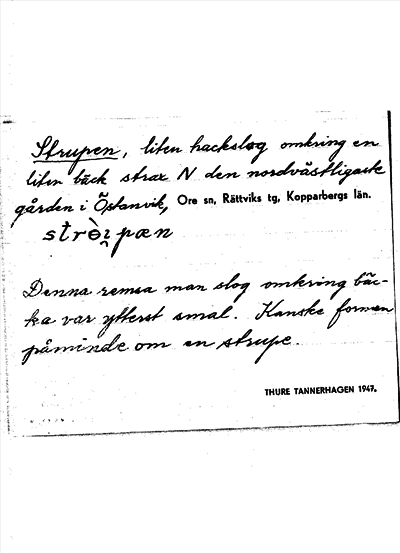 Strupen, liten hackslog omkring en
liten bäck strax N den nordvästligaste
gården i Östanvik, Ore sn, Rättviks tg, Kopparbergs län.
Denna remsa man slog omkring bäc-
ka var ytterst smal. Kanske formen
påminde om en strupe.
THURE TANNERHAGEN 1947.